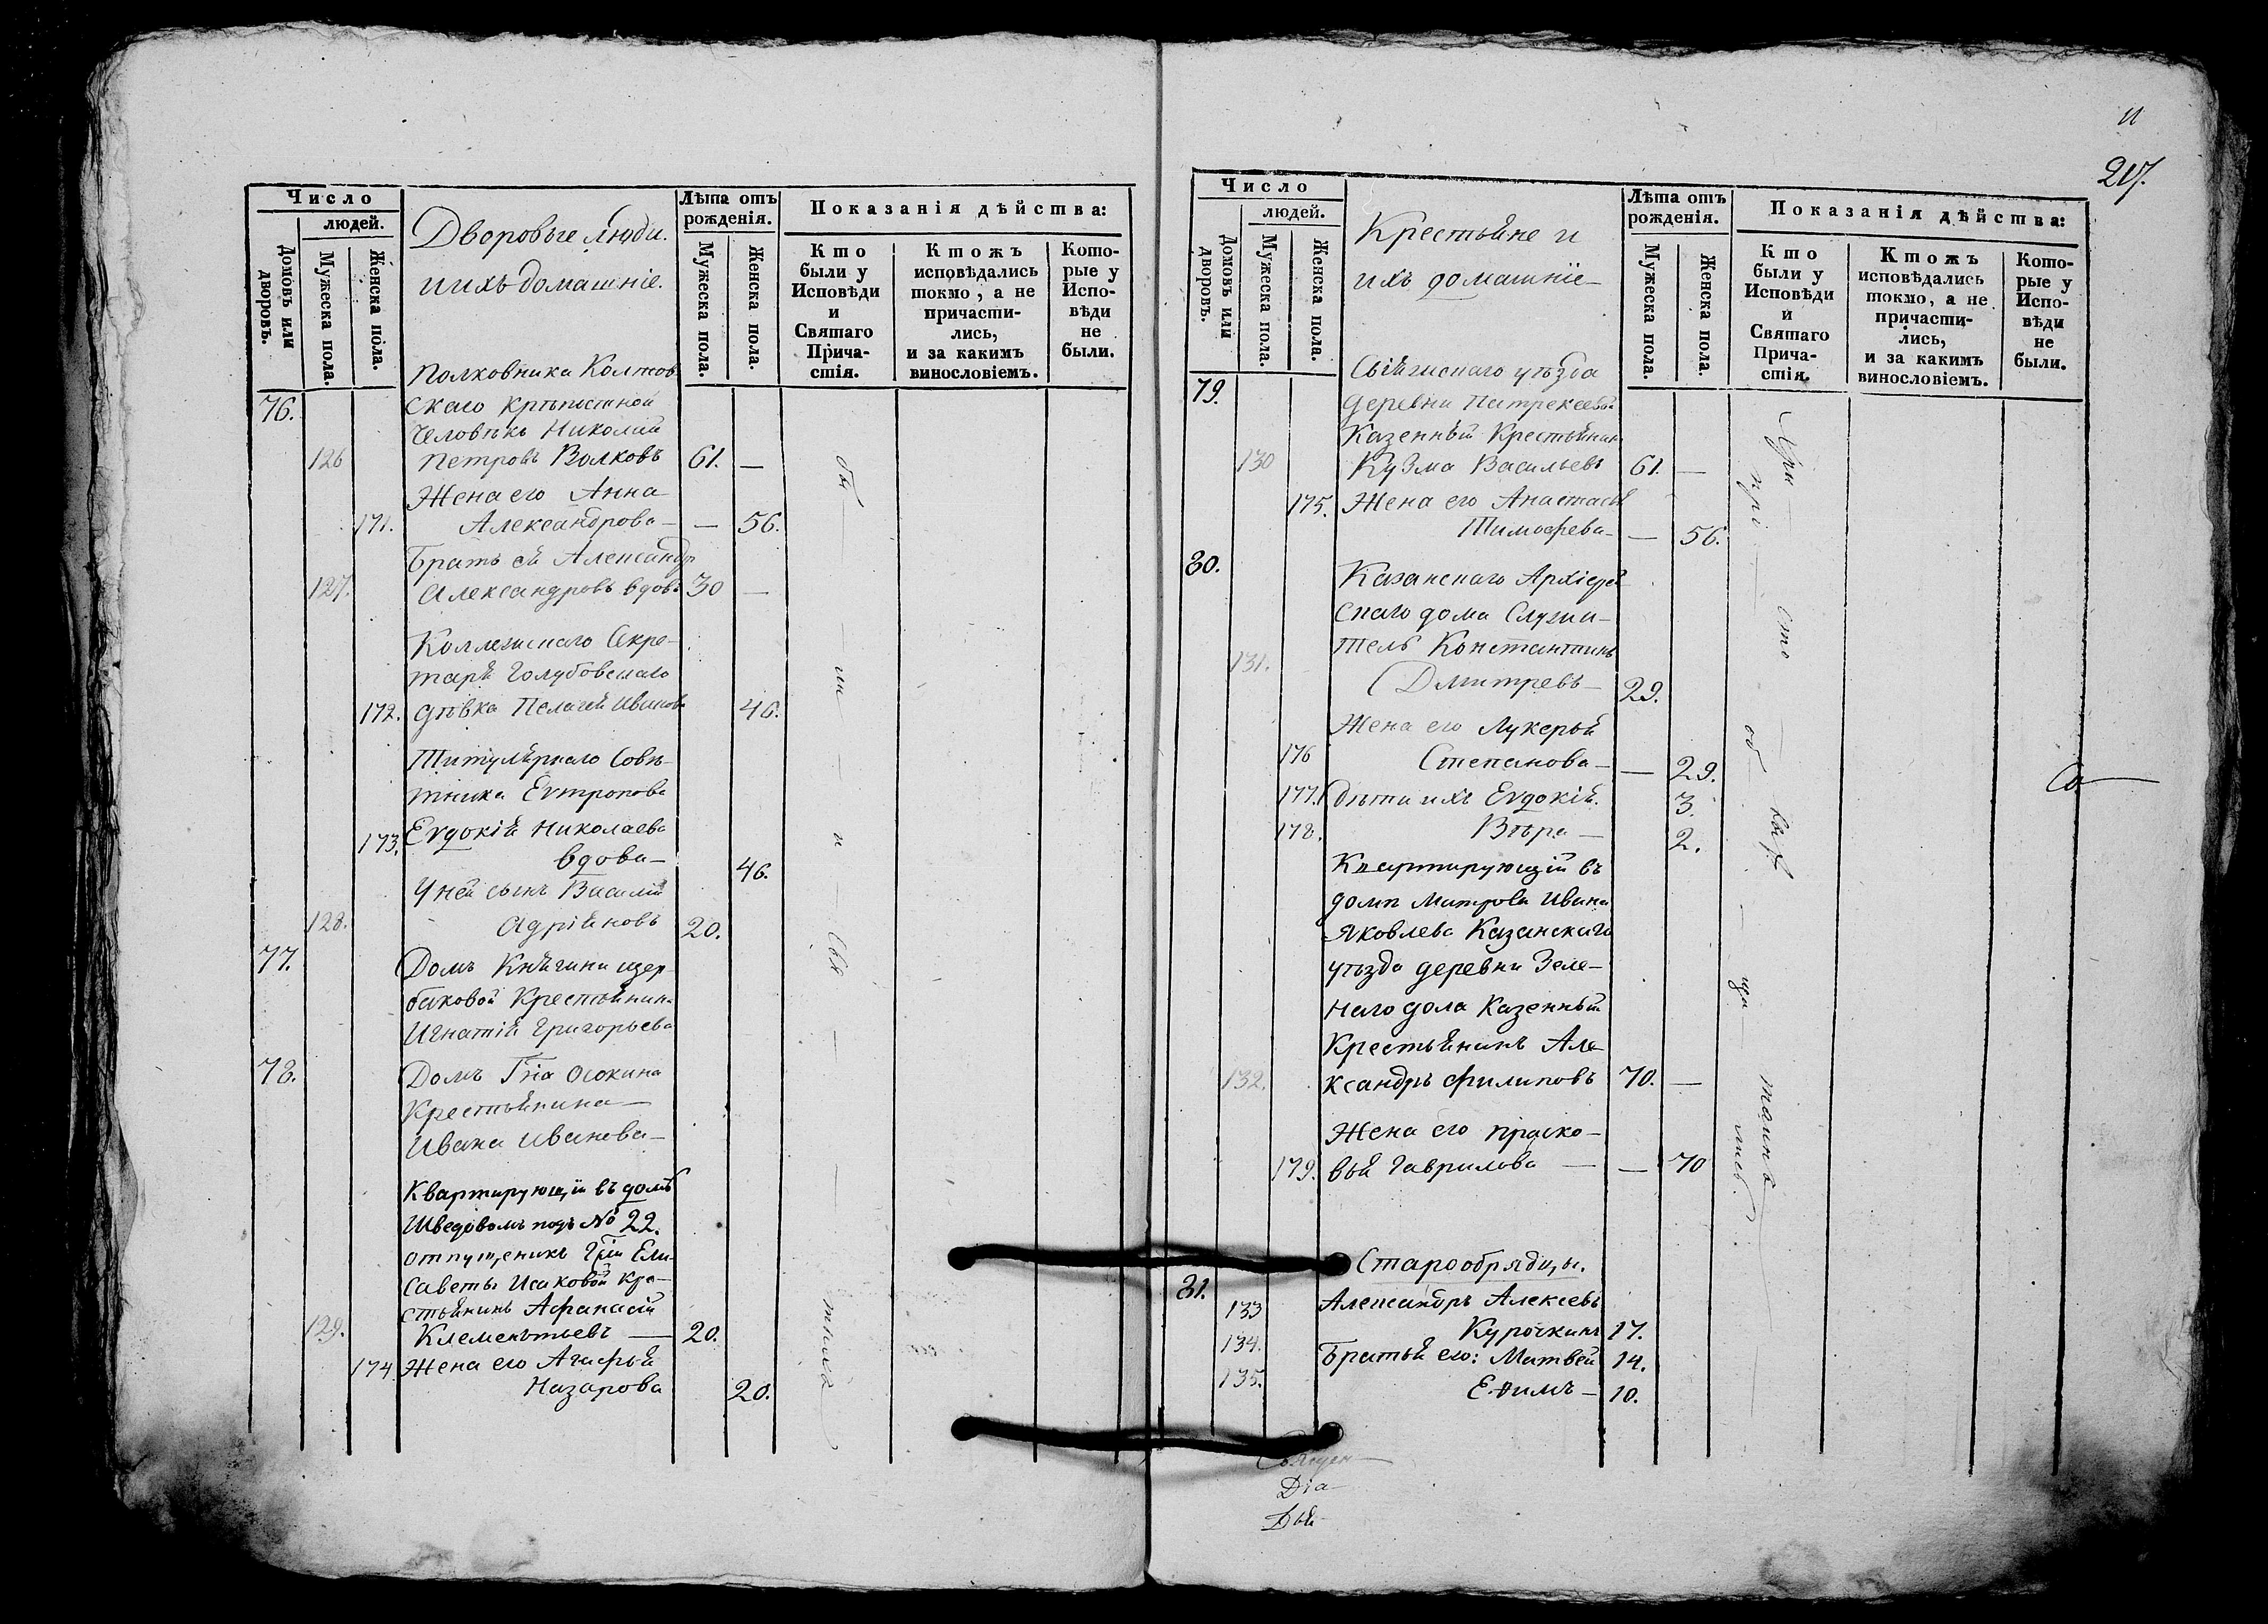 и
217.
Число
людей.
Домовъ или дворовъ.
Мужеска пола.
Женска пола.
Дворовые люди.
и ихъ домашніе.
Лѣта отъ рожденія.
Мужеска пола.
Женска пола.
Показанія дѣйства:
Кто были у Исповѣди и Святаго Прича-стія.
Ктожъ исповѣдались токмо, а не причасти-лись, и за какимъ винословіемъ.
Кото-рые у Испо-вѣди не были.
Полковника Колтов
76. скаго крѣпостной
человѣкъ Николай
126 Петровъ Волковъ 61. —
Жена его Анна
171. Александрова — — 56.
Братъ ей Александр
127. Александровъ вдовъ 30 —
Коллежскаго Секре-
таря Голубовскаго
172. дѣвка Пелагея Иванова 46.
Титулярнаго Совѣ-
тника Евтропова
173. Евдокія Николаева
вдова — 46.
У ней сынъ Василій
128. Адріяновъ 20.
77. Домъ Княгини Щер-
баковой Крестьянина
Игнатія Григорьева
78. Домъ Гна Осокина
Крестьянина —
Ивана Иванова —
Квартирующій въ домѣ
Шведовомъ подъ № 22.
отпущеникъ Гжи Ели-
саветы Исаковой Кре-
стьянинъ Афанасій
129. Клементьевъ — 20.
174 Жена его Агафья
Назарова 20.
Число
людей.
Домовъ или дворовъ.
Мужеска пола.
Женска пола.
Крестьяне и
ихъ домашніе —
Лѣта отъ рожденія.
Мужеска пола.
Женска пола.
Показанія дѣйства:
Кто были у Исповѣди и Святаго Прича-стія.
Ктожъ исповѣдались токмо, а не причасти-лись, и за какимъ винословіемъ.
Кото-рые у Испо-вѣди не были.
79. Свіяжскаго уѣзда
деревни Патрекеевы
Казенный Крестьянин
130 Кузма Васильевъ 61. —
175. Жена его Анастасія
Тимофеева — — 56.
80. Казанскаго Архіерей
скаго дома Служи-
131. тель Константинъ
Дмитревъ — 29.
Жена его Лукерья
176 Степанова — — 29.
177. Дѣти ихъ Евдокія. 3.
178. Вѣра — 2.
Квартирующій въ
домѣ Митрова Ивана
Яковлева Казанскаго
уѣзда деревни Зеле-
наго дола Казенный
Крестьянинъ Але-
132. ксандръ Филиповъ 70. —
Жена его Праско-
179. вья Гаврилова — — 70
Старообрядцы.
81.
133 Александръ Алексеевъ
Курочкинъ 17.
134. Братья его: Матвей 14.
135. Ефимъ — 10.
Со —
Священ —
Діа —
Дья